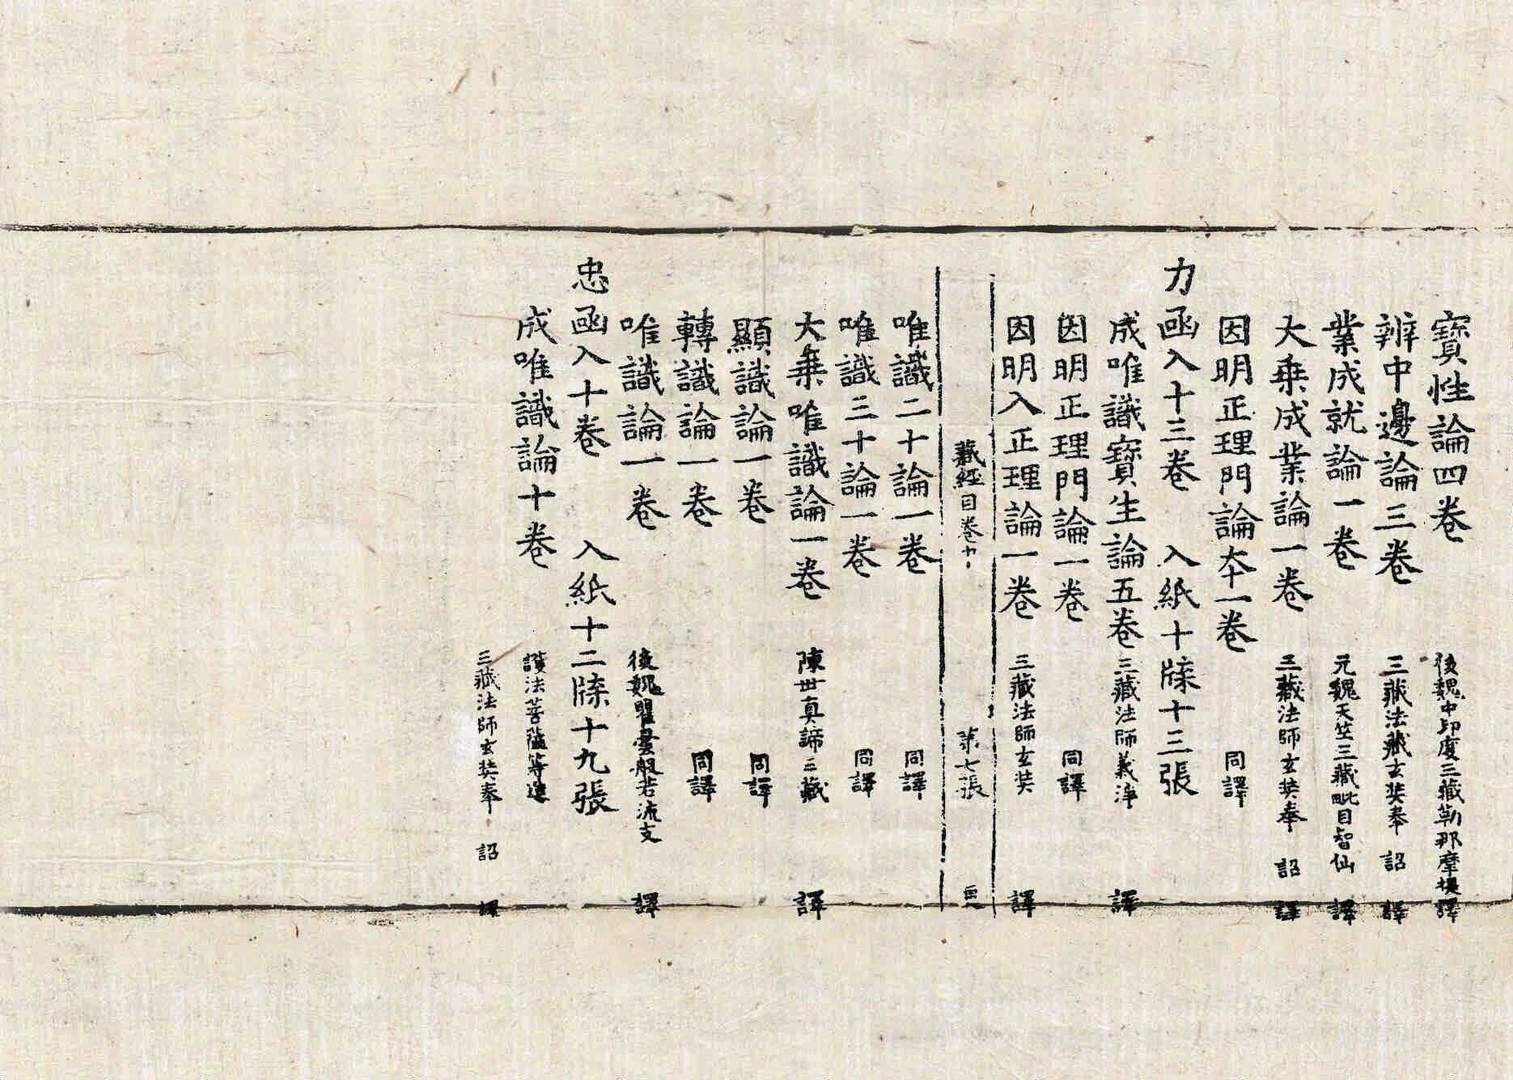 寶性論四卷 後魏中印度三藏勒那摩提譯
辨中邊論三卷 三藏法師玄奘奉 詔 譯
業成就論一卷 元魏天竺三藏毗目智仙 譯
大乗成業論一卷 三藏法師玄奘奉 詔 譯
因明正理門論本一卷 同譯
力函入十三卷 入紙十牒十三張
成唯識寶生論五卷 三藏法師義淨 譯
因明正理門論一卷 同譯
因明入正理論一卷 三藏法師玄奘 譯
藏經目卷 第七張
唯識二十論一卷 同譯
唯識三十論一卷 同譯
大乗唯識論一卷 陳世真諦三藏 譯
顯識論一卷 同譯
轉識論一卷 同譯
唯識論一卷 後魏瞿曇般若流支 譯
忠函入十卷 入紙十二牒十九張
成唯識論十卷 護法菩薩等造
三藏法師玄奘奉 詔 譯